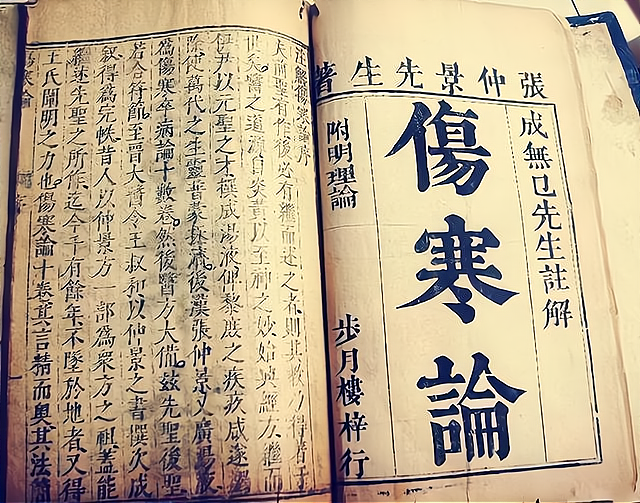 張仲景先生著
成無已先生註解
傷寒論
附明理論
步月樓梓行
註解傷寒論序
夫前聖有作後必有繼而述之者則其教乃得著于
世矣醫之道源自炎黃以至神之妙始興經方繼而
伊尹以元聖之才撰成湯液俾黎庶之疾疚咸遂蠲
除使萬代之生靈普蒙拯濟後漢張仲景又廣湯液
為傷寒卒病論十數卷然後醫方大備茲先聖後聖
若合符節至晉太醫令王叔和以仲景之書撰次成
敘得為完帙昔人以仲景方一部為眾方之祖蓋能
繼述先聖之所作迄今千有餘年不墜於地者又得
王氏闡明之力也傷寒論十卷其言精而奧其法簡
傷寒論